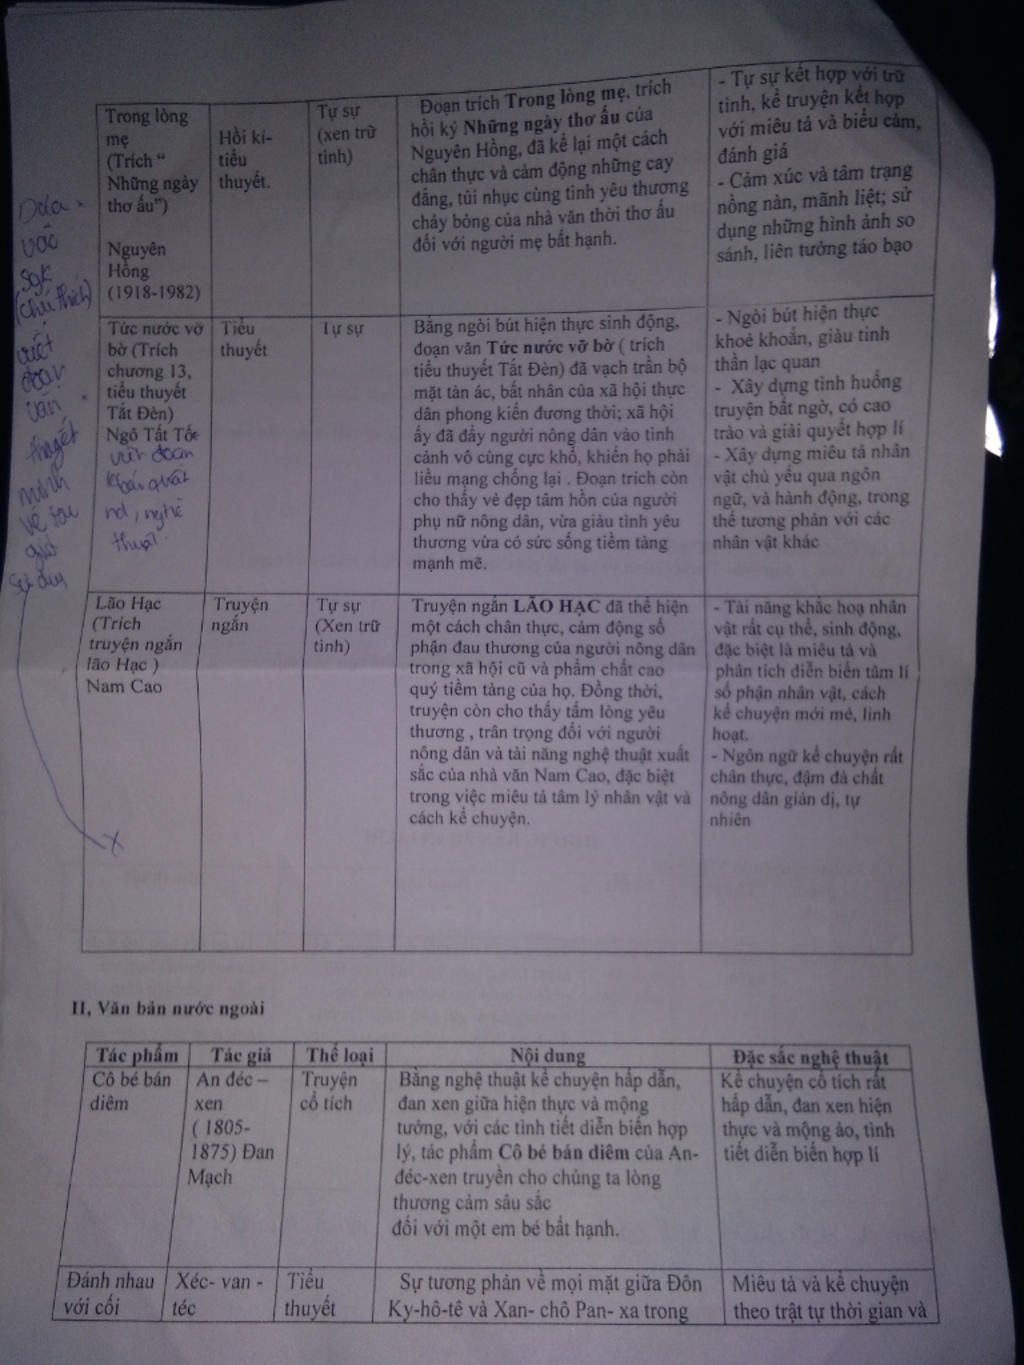 Trong lòng
mẹ
(Trích “
Những ngày
thơ ấu”)
Nguyên
Hồng
(1918-1982)
Hồi kí-
tiểu
thuyết.
Tự sự
(xen trữ
tình)
Đoạn trích Trong lòng mẹ, trích
hồi ký Những ngày thơ ấu của
Nguyên Hồng, đã kể lại một cách
chân thực và cảm động những cay
đắng, tủi nhục cùng tình yêu thương
cháy bỏng của nhà văn thời thơ ấu
đối với người mẹ bất hạnh.
- Tự sự kết hợp với trữ
tình, kể truyện kết hợp
với miêu tả và biểu cảm,
đánh giá
- Cảm xúc và tâm trạng
nồng nàn, mãnh liệt; sử
dụng những hình ảnh so
sánh, liên tưởng táo bạo
Dựa
vào
sgk
(chú thích)
viết
đoạn
văn
thuyết
minh
về tác
giả
Tức nước vỡ
bờ (Trích
chương 13,
tiểu thuyết
Tắt Đèn)
Ngô Tất Tố
viết đoạn
khái quát
nd, nghệ
thuật.
Tiểu
thuyết
Tự sự
Bằng ngòi bút hiện thực sinh động,
đoạn văn Tức nước vỡ bờ ( trích
tiểu thuyết Tắt Đèn) đã vạch trần bộ
mặt tàn ác, bất nhân của xã hội thực
dân phong kiến đương thời; xã hội
ấy đã đẩy người nông dân vào tình
cảnh vô cùng cực khổ, khiến họ phải
liều mạng chống lại . Đoạn trích còn
cho thấy vẻ đẹp tâm hồn của người
phụ nữ nông dân, vừa giàu tình yêu
thương vừa có sức sống tiềm tàng
mạnh mẽ.
- Ngòi bút hiện thực
khoẻ khoắn, giàu tinh
thần lạc quan
- Xây dựng tình huống
truyện bất ngờ, có cao
trào và giải quyết hợp lí
- Xây dựng miêu tả nhân
vật chủ yếu qua ngôn
ngữ, và hành động, trong
thế tương phản với các
nhân vật khác
Lão Hạc
(Trích
truyện ngắn
lão Hạc )
Nam Cao
Truyện
ngắn
Tự sự
(Xen trữ
tình)
Truyện ngắn LÃO HẠC đã thể hiện
một cách chân thực, cảm động số
phận đau thương của người nông dân
trong xã hội cũ và phẩm chất cao
quý tiềm tàng của họ. Đồng thời,
truyện còn cho thấy tấm lòng yêu
thương , trân trọng đối với người
nông dân và tài năng nghệ thuật xuất
sắc của nhà văn Nam Cao, đặc biệt
trong việc miêu tả tâm lý nhân vật và
cách kể chuyện.
- Tài năng khắc hoạ nhân
vật rất cụ thể, sinh động,
đặc biệt là miêu tả và
phân tích diễn biến tâm lí
số phận nhân vật, cách
kể chuyện mới mẻ, linh
hoạt.
- Ngôn ngữ kể chuyện rất
chân thực, đậm đà chất
nông dân giản dị, tự
nhiên
II, Văn bản nước ngoài
Tác phẩm Tác giả Thể loại Nội dung Đặc sắc nghệ thuật
Cô bé bán
diêm
An đéc –
xen
( 1805-
1875) Đan
Mạch
Truyện
cổ tích
Bằng nghệ thuật kể chuyện hấp dẫn,
đan xen giữa hiện thực và mộng
tưởng, với các tình tiết diễn biến hợp
lý, tác phẩm Cô bé bán diêm của An-
đéc-xen truyền cho chúng ta lòng
thương cảm sâu sắc
đối với một em bé bất hạnh.
Kể chuyện cổ tích rất
hấp dẫn, đan xen hiện
thực và mộng ảo, tình
tiết diễn biến hợp lí
Đánh nhau
với cối
Xéc- van -
téc
Tiểu
thuyết
Sự tương phản về mọi mặt giữa Đôn
Ky-hô-tê và Xan- chô Pan- xa trong
Miêu tả và kể chuyện
theo trật tự thời gian và